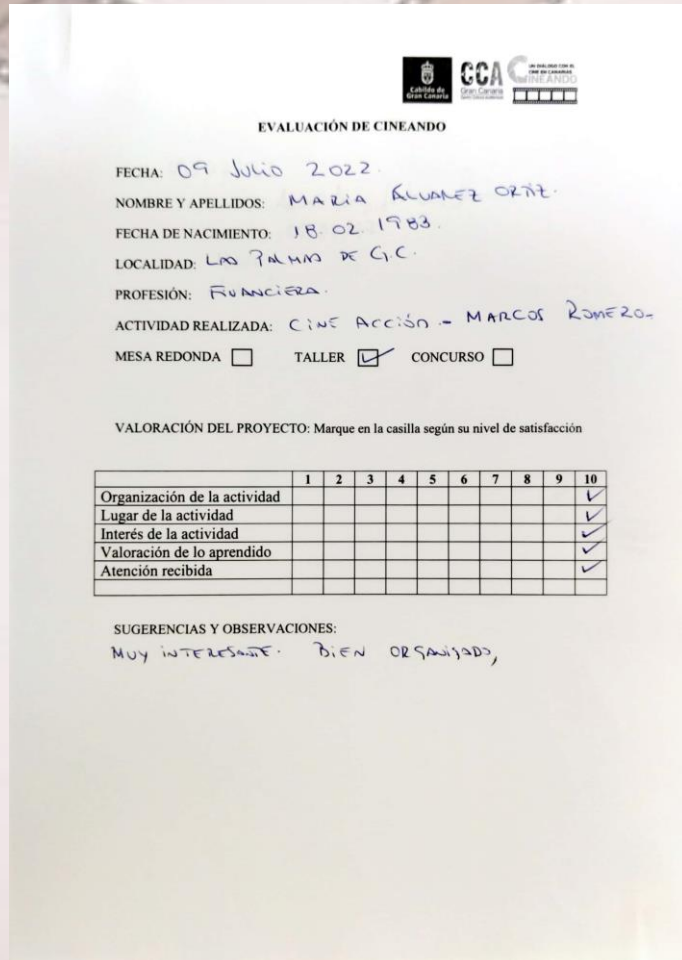 Cabildo de
Gran Canaria
CCA
Gran Canaria
UN DIÁLOGO CON EL
CINE EN CANARIAS
CINEANDO
EVALUACIÓN DE CINEANDO
FECHA: 09 Julio 2022.
NOMBRE Y APELLIDOS: MARIA ÁLVAREZ ORTIZ.
FECHA DE NACIMIENTO: 18.02.1983.
LOCALIDAD: LAS PALMAS DE G.C.
PROFESIÓN: FINANCIERA.
ACTIVIDAD REALIZADA: CINE ACCIÓN - MARCOS ROMERO-
MESA REDONDA TALLER ✓ CONCURSO
VALORACIÓN DEL PROYECTO: Marque en la casilla según su nivel de satisfacción
1 2 3 4 5 6 7 8 9 10
Organización de la actividad ✓
Lugar de la actividad ✓
Interés de la actividad ✓
Valoración de lo aprendido ✓
Atención recibida ✓
SUGERENCIAS Y OBSERVACIONES:
MUY INTERESANTE. BIEN ORGANIZADO,